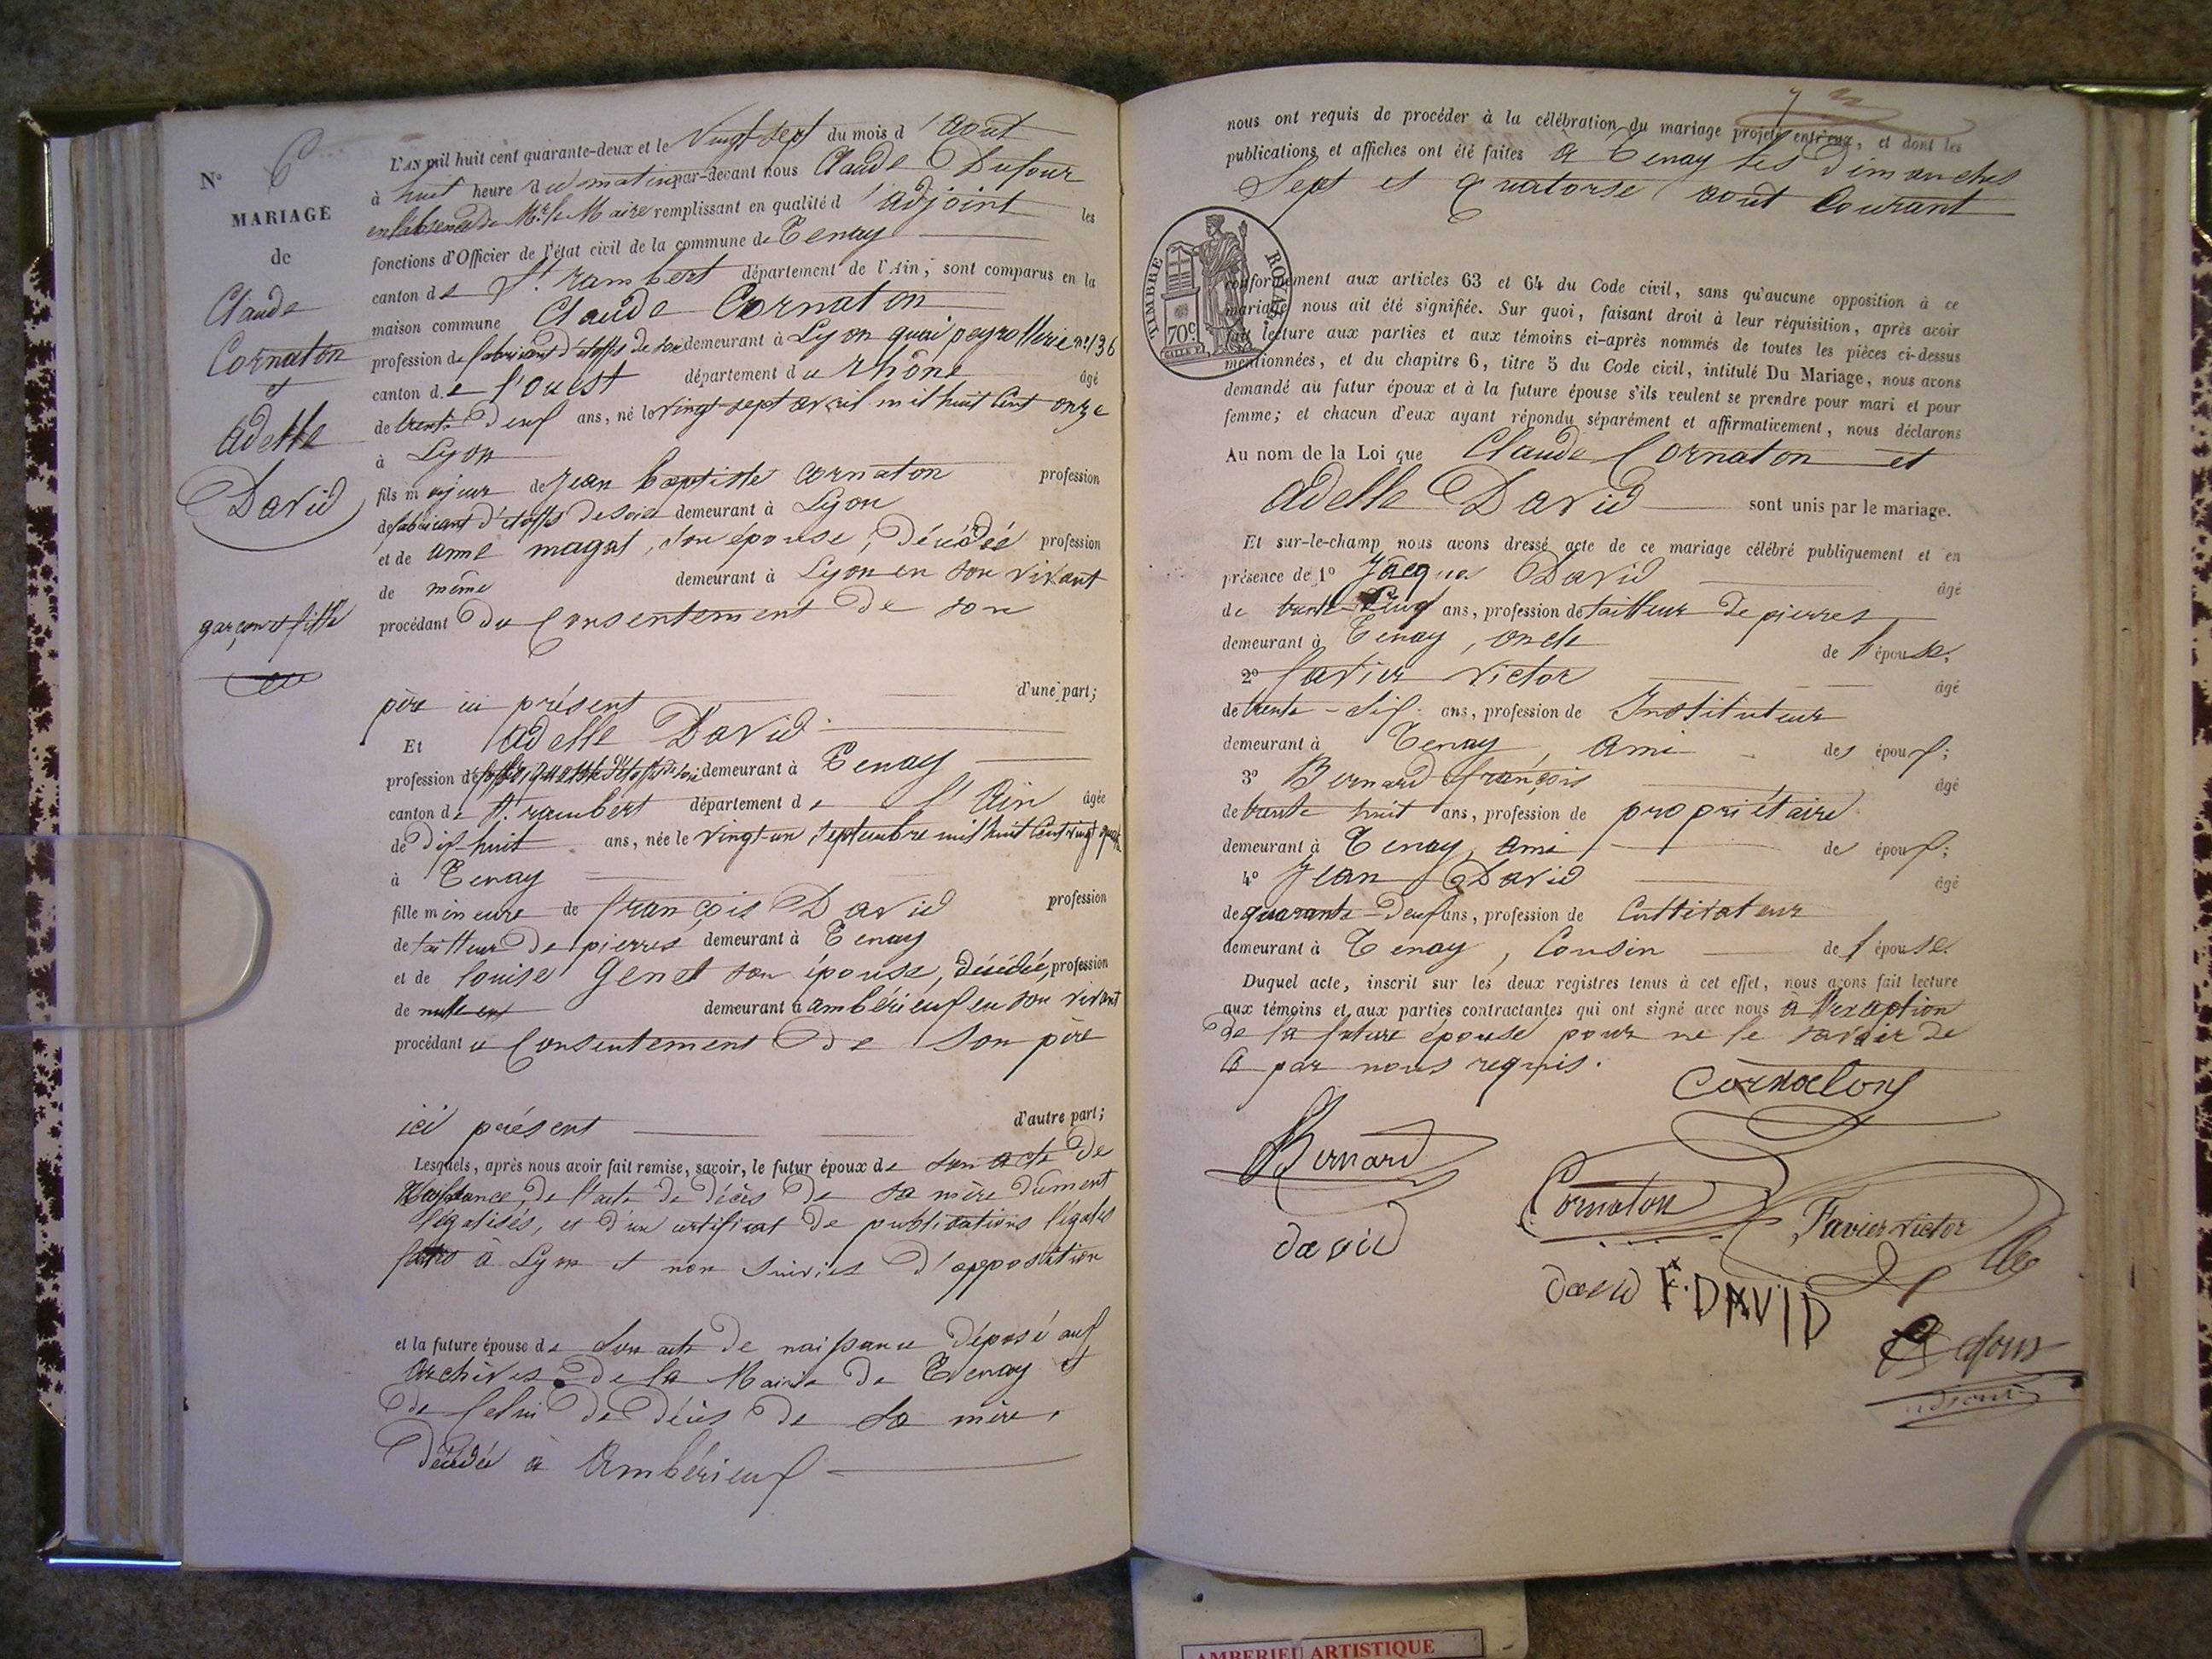 N° 6
MARIAGE
de
Claude
Cornaton
et
Adelle
David
garçon et fille
L'AN mil huit cent quarante-deux et le Vingt-sept du mois d'août
à huit heure du matin par-devant nous Claude Dufour
en l'absence de Mr. le Maire remplissant en qualité d'adjoint les
fonctions d'Officier de l'état civil de la commune de Tenay
canton de St. rambert département de l'Ain, sont comparus en la
maison commune Claude Cornaton
profession de fabricant d'étoffes de soie demeurant à Lyon quai peyrollerie n° 136
canton de l'ouest département du Rhône âgé
de trente deux ans, né le vingt sept avril mil huit Cent onze
à Lyon
fils majeur de Jean baptiste cornaton profession
de fabricant d'étoffes de soie demeurant à Lyon
et de anne magat, son épouse, décédée profession
de même demeurant à Lyon en son vivant
procédant du Consentement de son
père ici présent d'une part;
Et Adelle David
profession d demeurant à Tenay
canton de St. rambert département de l'Ain âgée
de dix-huit ans, née le vingt-un septembre mil huit Cent vingt
à Tenay
fille mineure de françois David profession
de tailleur de pierres demeurant à Tenay
et de louise Genet son épouse, décédée, profession
de demeurant à ambérieux en son vivant
procédant u Consentement de son père
ici présent d'autre part;
Lesquels, après nous avoir fait remise, savoir, le futur époux de son acte de
Naissance, de l'acte de décès de sa mère dûment
légalisés, et d'un certificat de publications légales
faites à Lyon et non suivies d'oppostition
et la future épouse de son acte de naissance déposé aux
archives de la Mairie de Tenay et
de Celui de décès de sa mère,
décédée à Ambérieux
nous ont requis de procéder à la célébration du mariage projeté entr'eux, et dont les
publications et affiches ont été faites à Tenay les dimanches
Sept et quatorse août Courant
TIMBRE ROYAL
70c.
conformément aux articles 63 et 64 du Code civil, sans qu'aucune opposition à ce
mariage nous ait été signifiée. Sur quoi, faisant droit à leur réquisition, après avoir
fait lecture aux parties et aux témoins ci-après nommés de toutes les pièces ci-dessus
mentionnées, et du chapitre 6, titre 5 du Code civil, intitulé Du Mariage, nous avons
demandé au futur époux et à la future épouse s'ils veulent se prendre pour mari et pour
femme; et chacun d'eux ayant répondu séparément et affirmativement, nous déclarons
Au nom de la Loi que Claude Cornaton et
Adelle David sont unis par le mariage.
Et sur-le-champ nous avons dressé acte de ce mariage célébré publiquement et en
présence de 1° Jacques David âgé
de trente-Cinq ans, profession de tailleur de pierres
demeurant à Tenay, oncle de l'épouse,
2° favier victor âgé
de trente-six ans, profession de Instituteur
demeurant à Tenay, ami des époux;
3° Bernard françois âgé
de trente huit ans, profession de propriétaire
demeurant à Tenay, ami des époux;
4° Jean David âgé
de quarante-deux ans, profession de Cultivateur
demeurant à Tenay, Cousin de l'épouse.
Duquel acte, inscrit sur les deux registres tenus à cet effet, nous avons fait lecture
aux témoins et aux parties contractantes qui ont signé avec nous à l'exception
de la future épouse pour ne le savoir de
ce par nous requis.
Cornaton
Bernard
Cornaton
Favier victor
david
david F. DAVID
adjoint
AMBERIEU ARTISTIQUE